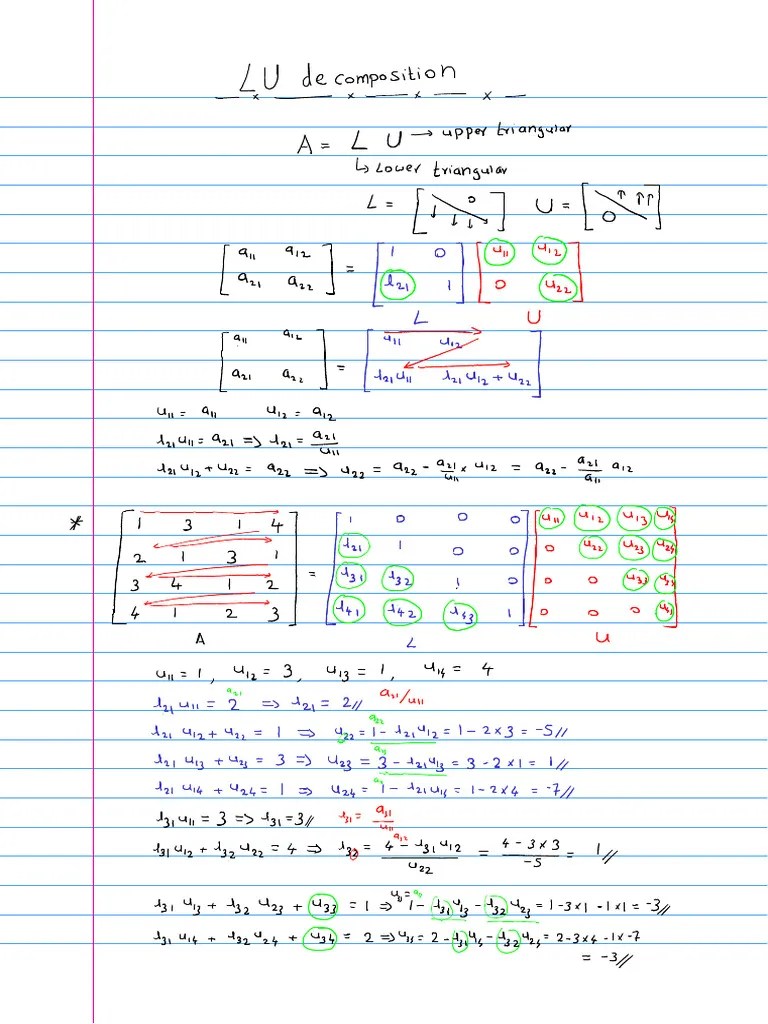 LU decomposition
A = L U → upper triangular
↳ Lower triangular
L = [ 0 ] U = [ 0 ]
[ a11 a12 ] = [ 1 0 ] [ u11 u12 ]
[ a21 a22 ] [ l21 1 ] [ 0 u22 ]
L U
[ a11 a12 ] = [ u11 u12 ]
[ a21 a22 ] [ l21 u11 l21 u12 + u22 ]
u11 = a11 u12 = a12
l21 u11 = a21 => l21 = a21/u11
l21 u12 + u22 = a22 => u22 = a22 - a21/u11 × u12 = a22 - a21/a11 a12
* [ 1 3 1 4 ] = [ 1 0 0 0 ] [ u11 u12 u13 u14 ]
[ 2 1 3 1 ] [ l21 1 0 0 ] [ 0 u22 u23 u24 ]
[ 3 4 1 2 ] [ l31 l32 1 0 ] [ 0 0 u33 u34 ]
[ 4 1 2 3 ] [ l41 l42 l43 1 ] [ 0 0 0 u44 ]
A L U
u11 = 1, u12 = 3, u13 = 1, u14 = 4
l21 u11 = 2 => l21 = 2// a21/u11
l21 u12 + u22 = 1 => u22 = 1 - l21 u12 = 1 - 2 × 3 = -5//
l21 u13 + u23 = 3 => u23 = 3 - l21 u13 = 3 - 2 × 1 = 1//
l21 u14 + u24 = 1 => u24 = 1 - l21 u14 = 1 - 2 × 4 = -7//
l31 u11 = 3 => l31 = 3// l31 = a31/u11
l31 u12 + l32 u22 = 4 => l32 = (4 - l31 u12)/u22 = (4 - 3 × 3)/-5 = 1//
l31 u13 + l32 u23 + u33 = 1 => 1 - l31 u13 - l32 u23 = 1 - 3×1 - 1×1 = -3//
l31 u14 + l32 u24 + u34 = 2 => u34 = 2 - l31 u14 - l32 u24 = 2 - 3×4 - 1×-7
= -3//